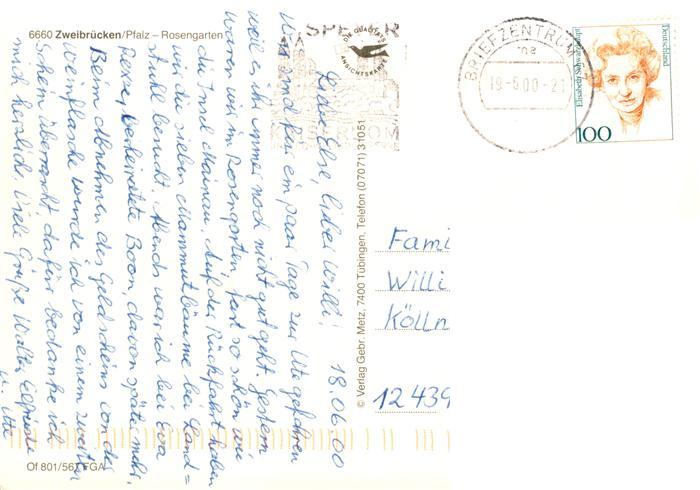 6660 Zweibrücken/Pfalz – Rosengarten
18.06.00
Liebe Else, lieber Willi!
Wir sind für ein paar Tage zur Ute gefahren
weil es ihr immer noch nicht gut geht. Gestern
waren wir im Rosengarten, fast so schön wie
die Insel Mainau. Auf der Rückfahrt haben
wir die sieben Mammutbäume bei Land=
stuhl besucht. Abends war ich bei Eva
verheiratete Boon, davon später mehr.
Beim Abnehmen des Geldscheins von der
Weinflasche wurde ich von einem zweiten
Schein überrascht dafür bedanke ich
mich herzlich. Viele Grüße Walter
u. Ute
Of 801/567 FGA
© Verlag Gebr. Metz, 7400 Tübingen, Telefon (07071) 31051
DIE QUALITÄTS
ANSICHTSKARTE
SPEYER
KAISERDOM
BRIEFZENTRUM
19.-6.00-21
Elisabeth Schwarzhaupt
Deutschland
100
Fami
Willi
Kölln
12439